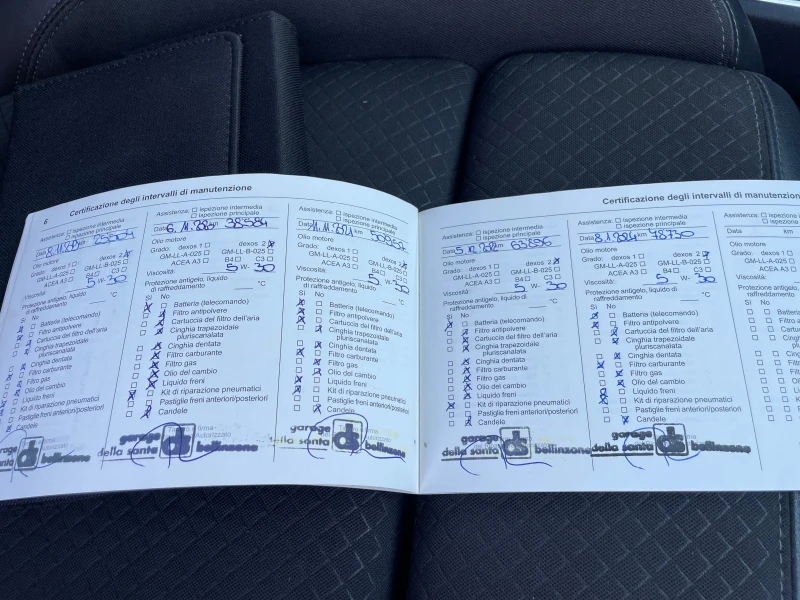 6
Certificazione degli intervalli di manutenzione
Assistenza: ispezione intermedia
ispezione principale
Data km
Olio motore
Grado: dexos 1 dexos 2
GM-LL-A-025 GM-LL-B-025
ACEA A3 B4 C3
Viscosità: 5 W- 30
Protezione antigelo, liquido
di raffreddamento °C
Sì No
Batteria (telecomando)
Filtro antipolvere
Cartuccia del filtro dell'aria
Cinghia trapezoidale
pluriscanalata
Cinghia dentata
Filtro carburante
Filtro gas
Olio del cambio
Liquido freni
Kit di riparazione pneumatici
Pastiglie freni anteriori/posteriori
Candele
garage
della santa ds
bellinzona
Assistenza: ispezione intermedia
ispezione principale
Data 38584
Olio motore
Grado: dexos 1 dexos 2
GM-LL-A-025 GM-LL-B-025
ACEA A3 B4 C3
Viscosità: 5 W- 30
Protezione antigelo, liquido
di raffreddamento °C
Sì No
Batteria (telecomando)
Filtro antipolvere
Cartuccia del filtro dell'aria
Cinghia trapezoidale
pluriscanalata
Cinghia dentata
Filtro carburante
Filtro gas
Olio del cambio
Liquido freni
Kit di riparazione pneumatici
Pastiglie freni anteriori/posteriori
Candele
garage
della santa ds bellinzona
Assistenza: ispezione intermedia
ispezione principale
Data km
Olio motore
Grado: dexos 1 dexos 2
GM-LL-A-025 GM-LL-B-025
ACEA A3 B4 C3
Viscosità: 5 W- 30
Protezione antigelo, liquido
di raffreddamento °C
Sì No
Batteria (telecomando)
Filtro antipolvere
Cartuccia del filtro dell'aria
Cinghia trapezoidale
pluriscanalata
Cinghia dentata
Filtro carburante
Filtro gas
Olio del cambio
Liquido freni
Kit di riparazione pneumatici
Pastiglie freni anteriori/posteriori
Candele
garage
della santa ds bellinzona
Certificazione degli intervalli di manutenzion
Assistenza: ispezione intermedia
ispezione principale
Data 63896
Olio motore
Grado: dexos 1 dexos 2
GM-LL-A-025 GM-LL-B-025
ACEA A3 B4 C3
Viscosità: 5 W- 30
Protezione antigelo, liquido
di raffreddamento °C
Sì No
Batteria (telecomando)
Filtro antipolvere
Cartuccia del filtro dell'aria
Cinghia trapezoidale
pluriscanalata
Cinghia dentata
Filtro carburante
Filtro gas
Olio del cambio
Liquido freni
Kit di riparazione pneumatici
Pastiglie freni anteriori/posteriori
Candele
garage
della santa ds bellinzona
Assistenza: ispezione intermedia
ispezione principale
Data km 78730
Olio motore
Grado: dexos 1 dexos 2
GM-LL-A-025 GM-LL-B-025
ACEA A3 B4 C3
Viscosità: 5 W- 30
Protezione antigelo, liquido
di raffreddamento °C
Sì No
Batteria (telecomando)
Filtro antipolvere
Cartuccia del filtro dell'aria
Cinghia trapezoidale
pluriscanalata
Cinghia dentata
Filtro carburante
Filtro gas
Olio del cambio
Liquido freni
Kit di riparazione pneumatici
Pastiglie freni anteriori/posteriori
Candele
garage
della santa ds bellinzona
Assistenza:
Data km
Olio motore
Grado: dexos 1
GM-LL-A-025
ACEA A3
Viscosità:
Protezione antigelo,
di raffreddamento
Sì No